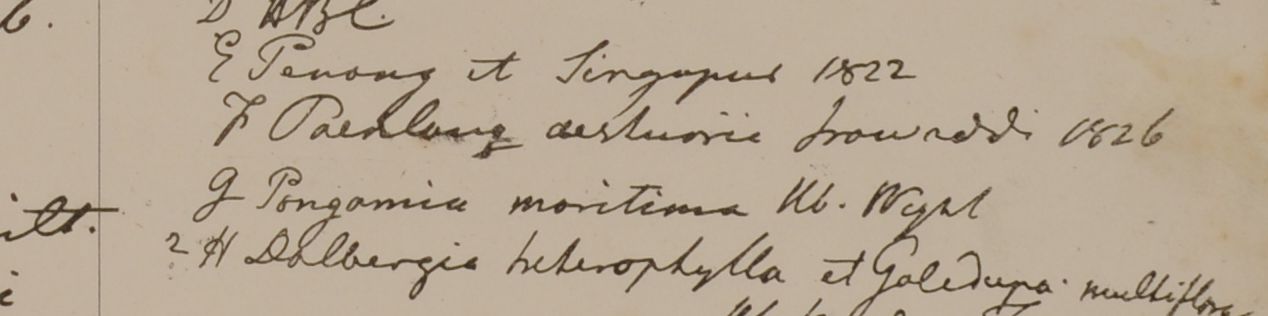 6.
D HBC.
E Penang et Singapur 1822
F Paenlang aestuarie Irawaddi 1826
G Pongamia maritima Hb. Wight
2 H Dalbergia heterophylla et Galedupa multiflora